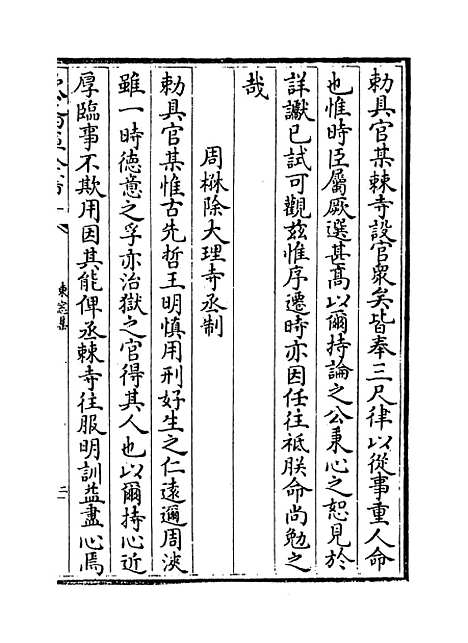 勅具官某棘寺設官衆矣皆奉三尺律以從事重人命
也惟時臣屬厥選甚髙以爾持論之公秉心之恕見於
詳讞已試可觀兹惟序遷時亦因任往祗朕命尚勉之
哉
周楙除大理寺丞制
勅具官某惟古先哲王明慎用刑好生之仁遠邇周浹
雖一時徳意之孚亦治獄之官得其人也以爾持心近
厚臨事不欺用因其能俾丞棘寺往服明訓益盡心焉
東窓集
二